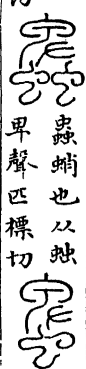 蟲蛸也从䖵
卑聲匹標切